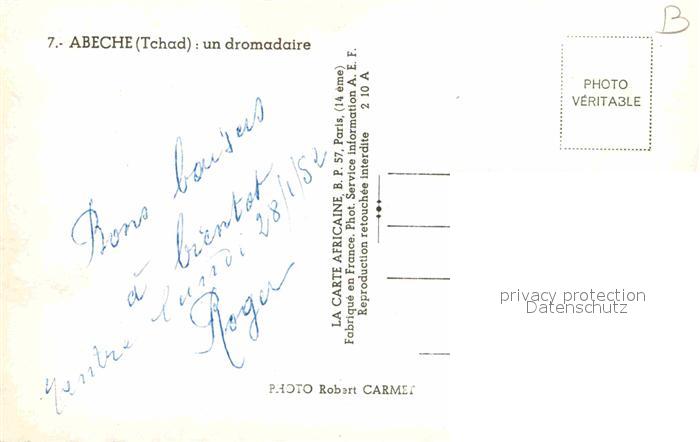 B
7.- ABECHE (Tchad) : un dromadaire
PHOTO
VÉRITABLE
Bons baisers
à bientot
rentre lundi 28/1/52
Roger
LA CARTE AFRICAINE, B. P. 57, Paris, (14 ème)
Fabriqué en France. Phot. Service information A. E. F.
Reproduction retouchée interdite 2 10 A
privacy protection
Datenschutz
PHOTO Robert CARMET